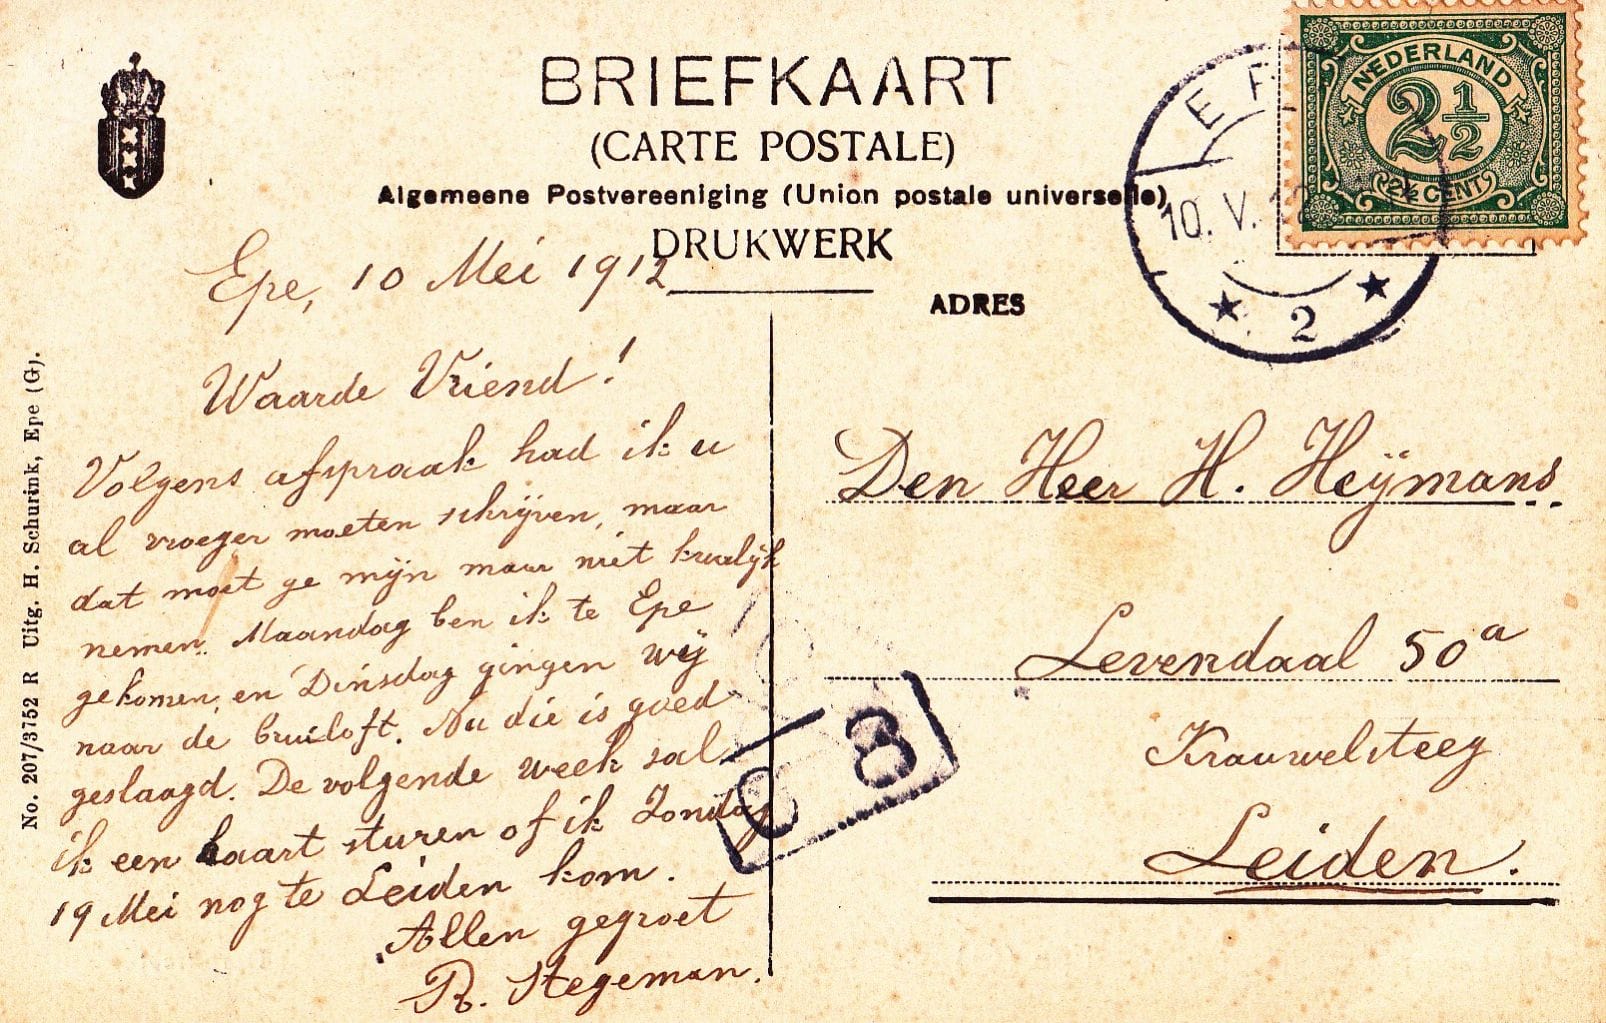 BRIEFKAART
(CARTE POSTALE)
Algemeene Postvereeniging (Union postale universelle)
DRUKWERK
ADRES
NEDERLAND
2 1/2
2½ CENT
EP
10. V. 12
2
No. 207/3752 R Uitg. H. Schurink, Epe (G).
Epe, 10 Mei 1912
Waarde Vriend!
Volgens afspraak had ik u
al vroeger moeten schrijven, maar
dat moet ge mijn maar niet kwalijk
nemen. Maandag ben ik te Epe
gekomen, en Dinsdag gingen wij
naar de bruiloft. Nu die is goed
geslaagd. De volgende week sal
ik een kaart sturen of ik Zondag
19 Mei nog te Leiden kom.
Allen gegroet
R. Stegeman.
Den Heer H. Heijmans.
Levendaal 50a
Krauwelsteeg
Leiden.
8